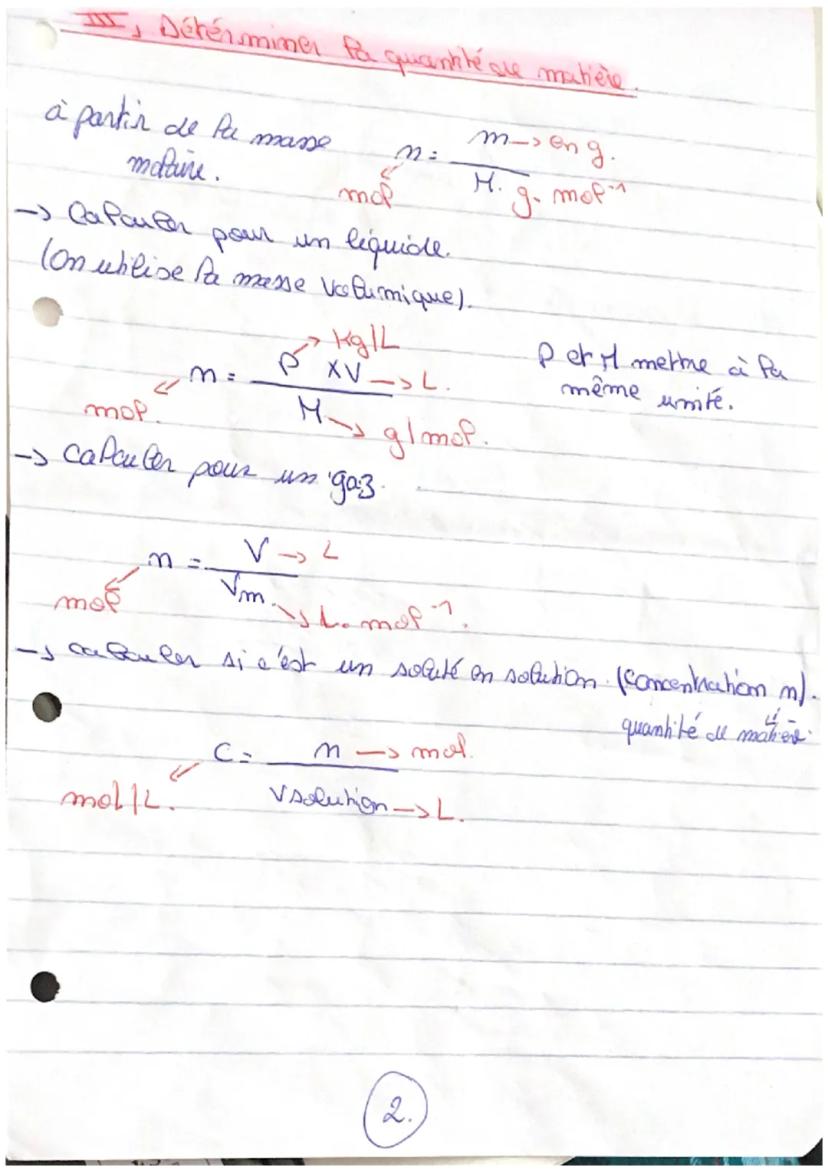 III, Détérminer la quantité de matière.
à partir de la masse
molaire.
n = m → en g.
M. g. mol⁻¹
mol
→ Calculer pour un liquide.
(On utilise la masse volumique).
n = ρ × V → L.
Kg/L
M → g/mol.
mol.
ρ et M mettre à la
même unité.
→ calculer pour un gaz.
n = V → L
Vm → L. mol⁻¹.
mol
→ calculer si c'est un soluté en solution. (concentration n).
quantité de matière.
C = n → mol.
Vsolution → L.
mol/L.
2.